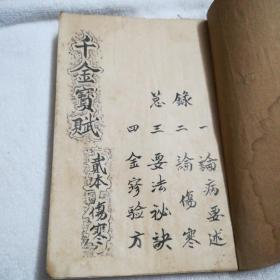 千金寳賦
貳本 傷寒
一論病要述
錄二論傷寒
總三要法祕訣
四金穸验方